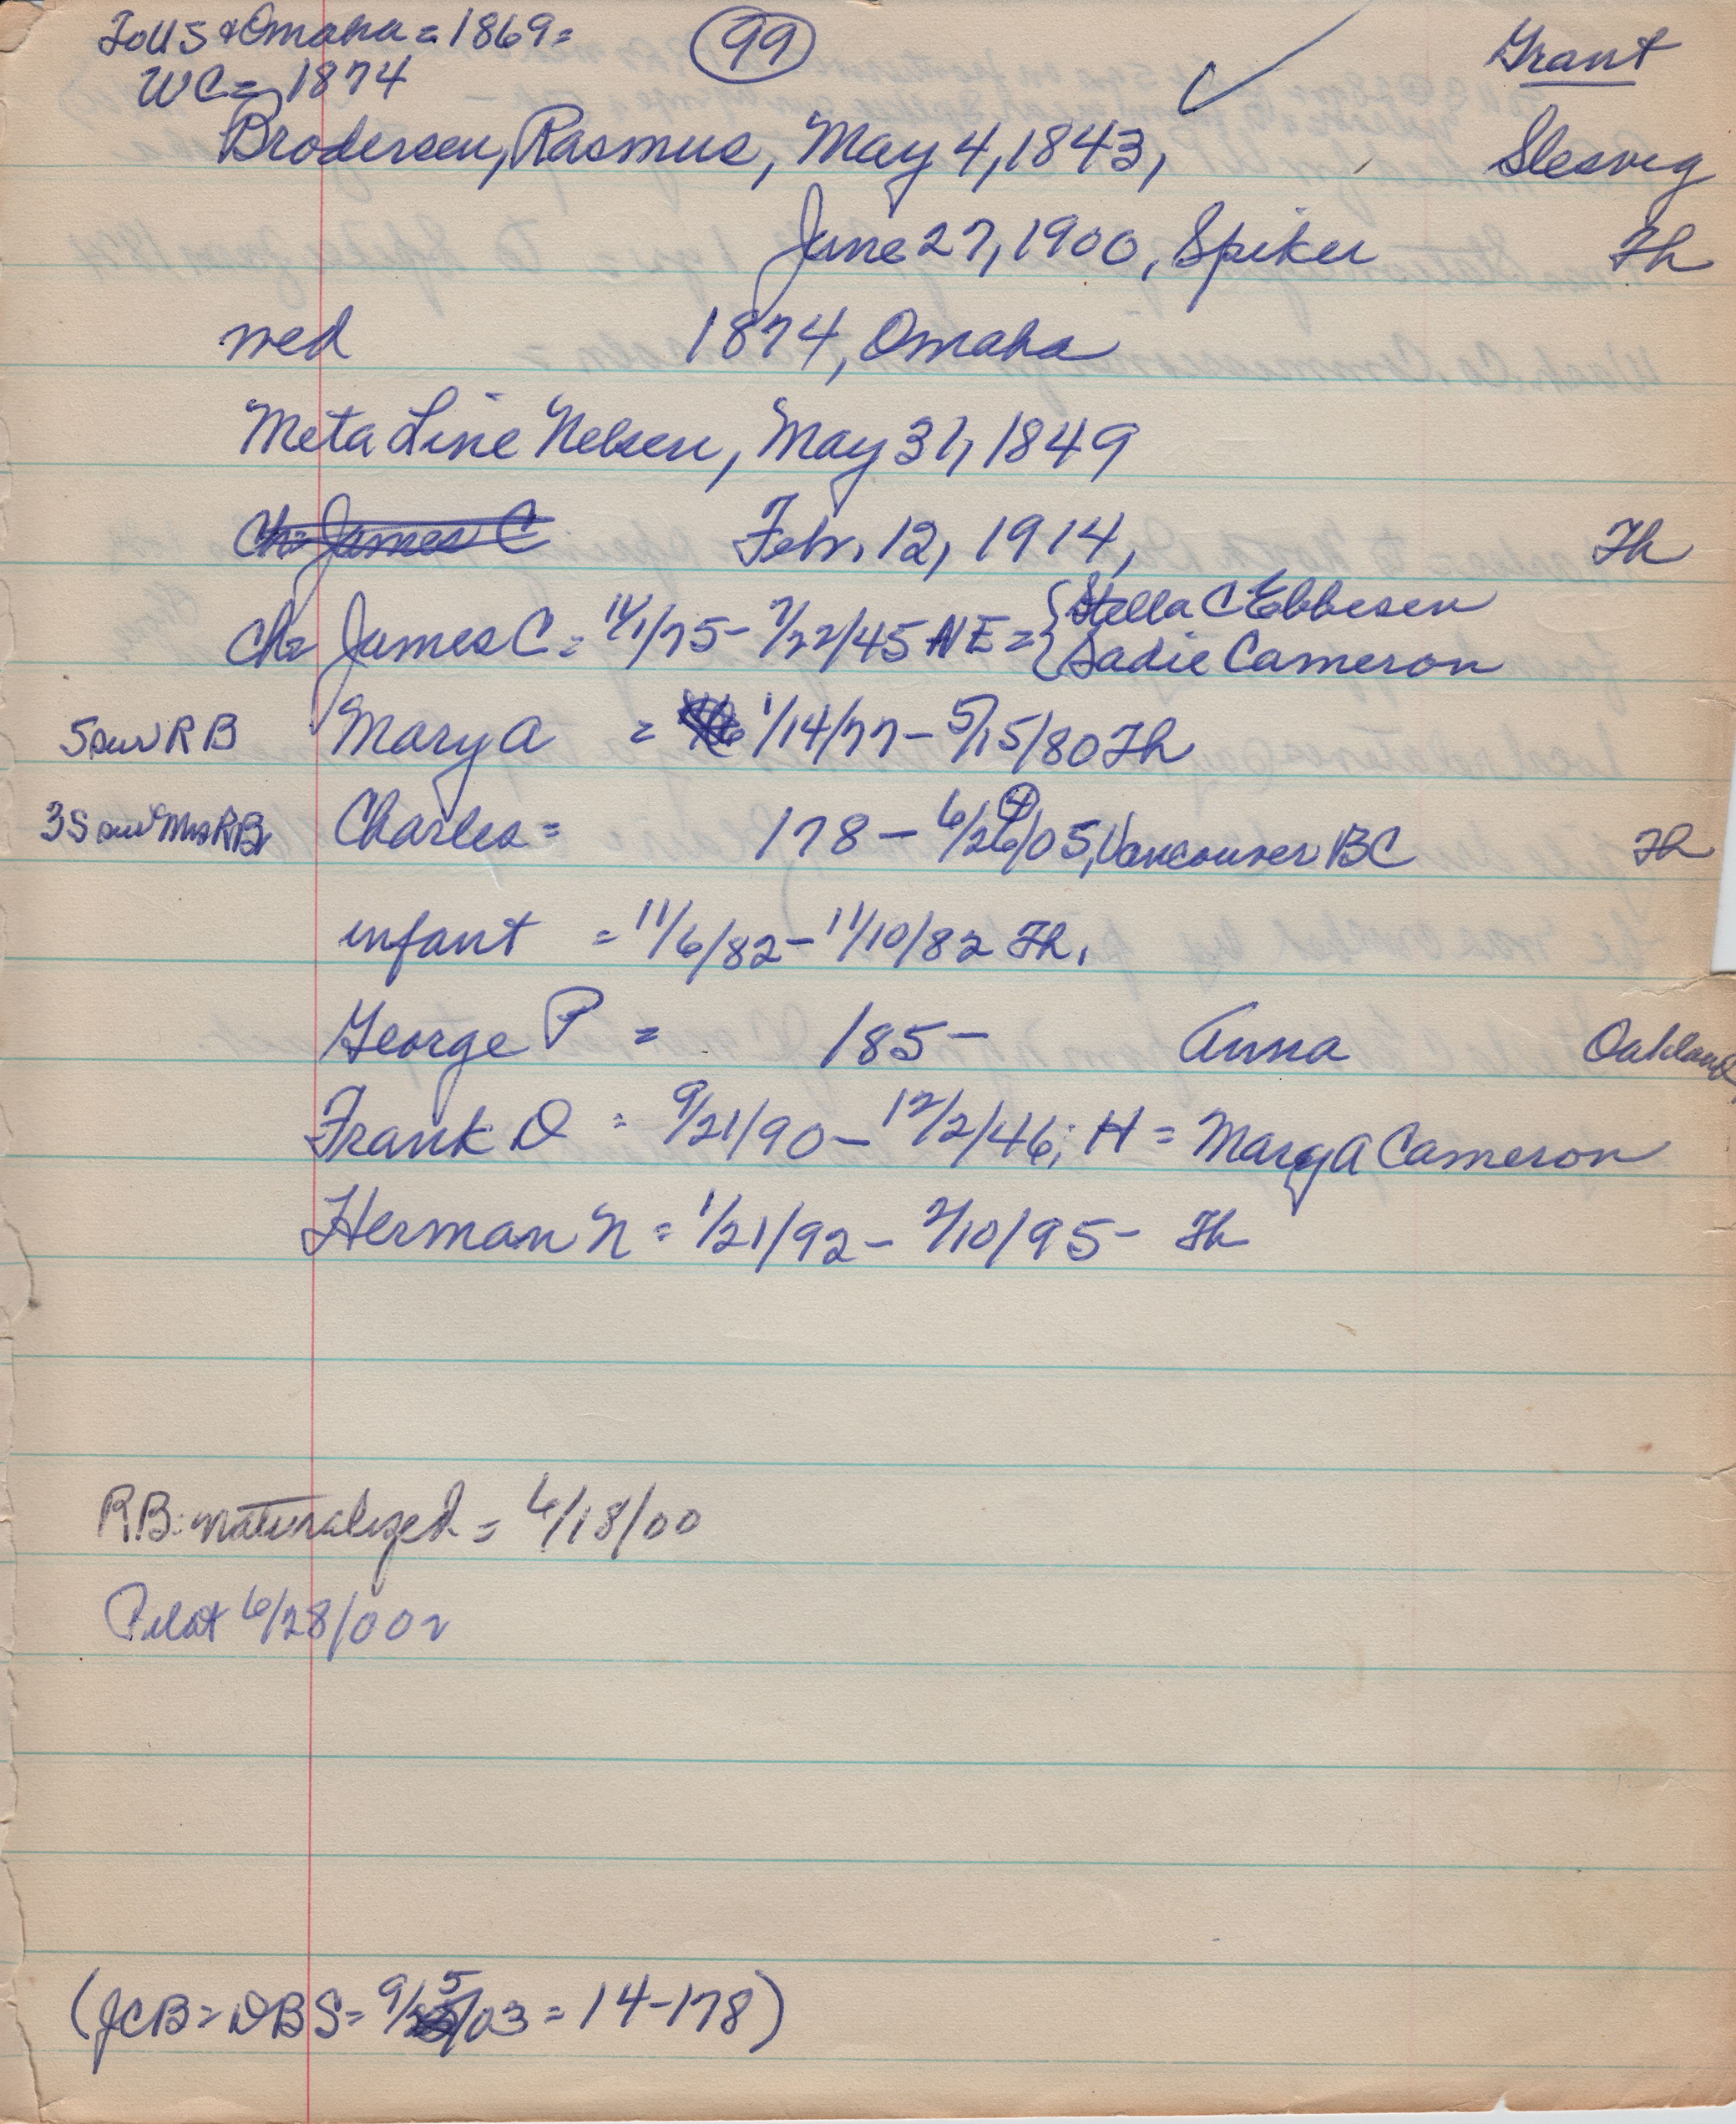 To US & Omaha = 1869 =
99
Grant
WC = 1874
Brodersen, Rasmus, May 4, 1843, Slesvig
June 27, 1900, Spiker Fh
wed 1874, Omaha
Meta Line Nelsen, May 31, 1849
Ch = James C Febr. 12, 1914, Fh
Ch = James C = 11/1/75 - 7/22/45 NE = {Stella C Ebbesen
{Sadie Cameron
5 surv RB Mary A = 1/14/77 - 5/15/80 Fh
3 S surv Mrs RB Charles = /78 - 6/26/05, Vancouver BC Fh
4
infant = 11/6/82 - 11/10/82 Fh.
George P = /85 - Anna Oakland
Frank D = 9/21/90 - 12/2/46; H = Mary A Cameron
Herman N = 1/21/92 - 2/10/95 - Fh
R.B. naturalized = 6/18/00
Pilot 6/28/00
(JCB = DBS = 9/5/03 = 14-178)